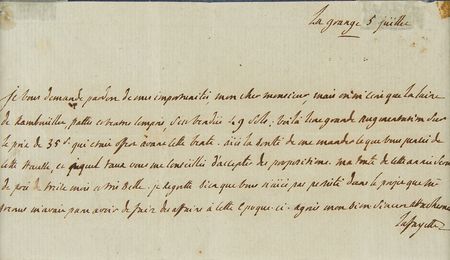 La grange 5 juillet
je vous demande pardon de mes importunités, mon cher monsieur, mais on m'ecrit que la laine
de Rambouillet, pattes et ventres compris, s'est vendue 49 sols. voilà une grande augmentation sur
le prix de 38 s. qui offert avant cette vente. ayés la bonté de me mander ce que vous pensés de
cette nouvelle, et à quel taux vous me conseillés d'accepter des propositions. ma tonte de cette année
de près de treize mois est très belle. je regrette bien que vous n'aiés pas persisté dans le projet que
m'avait paru avoir de faire des affaires à cette époque-ci. agréés mon bien sincere attachement
Lafayette